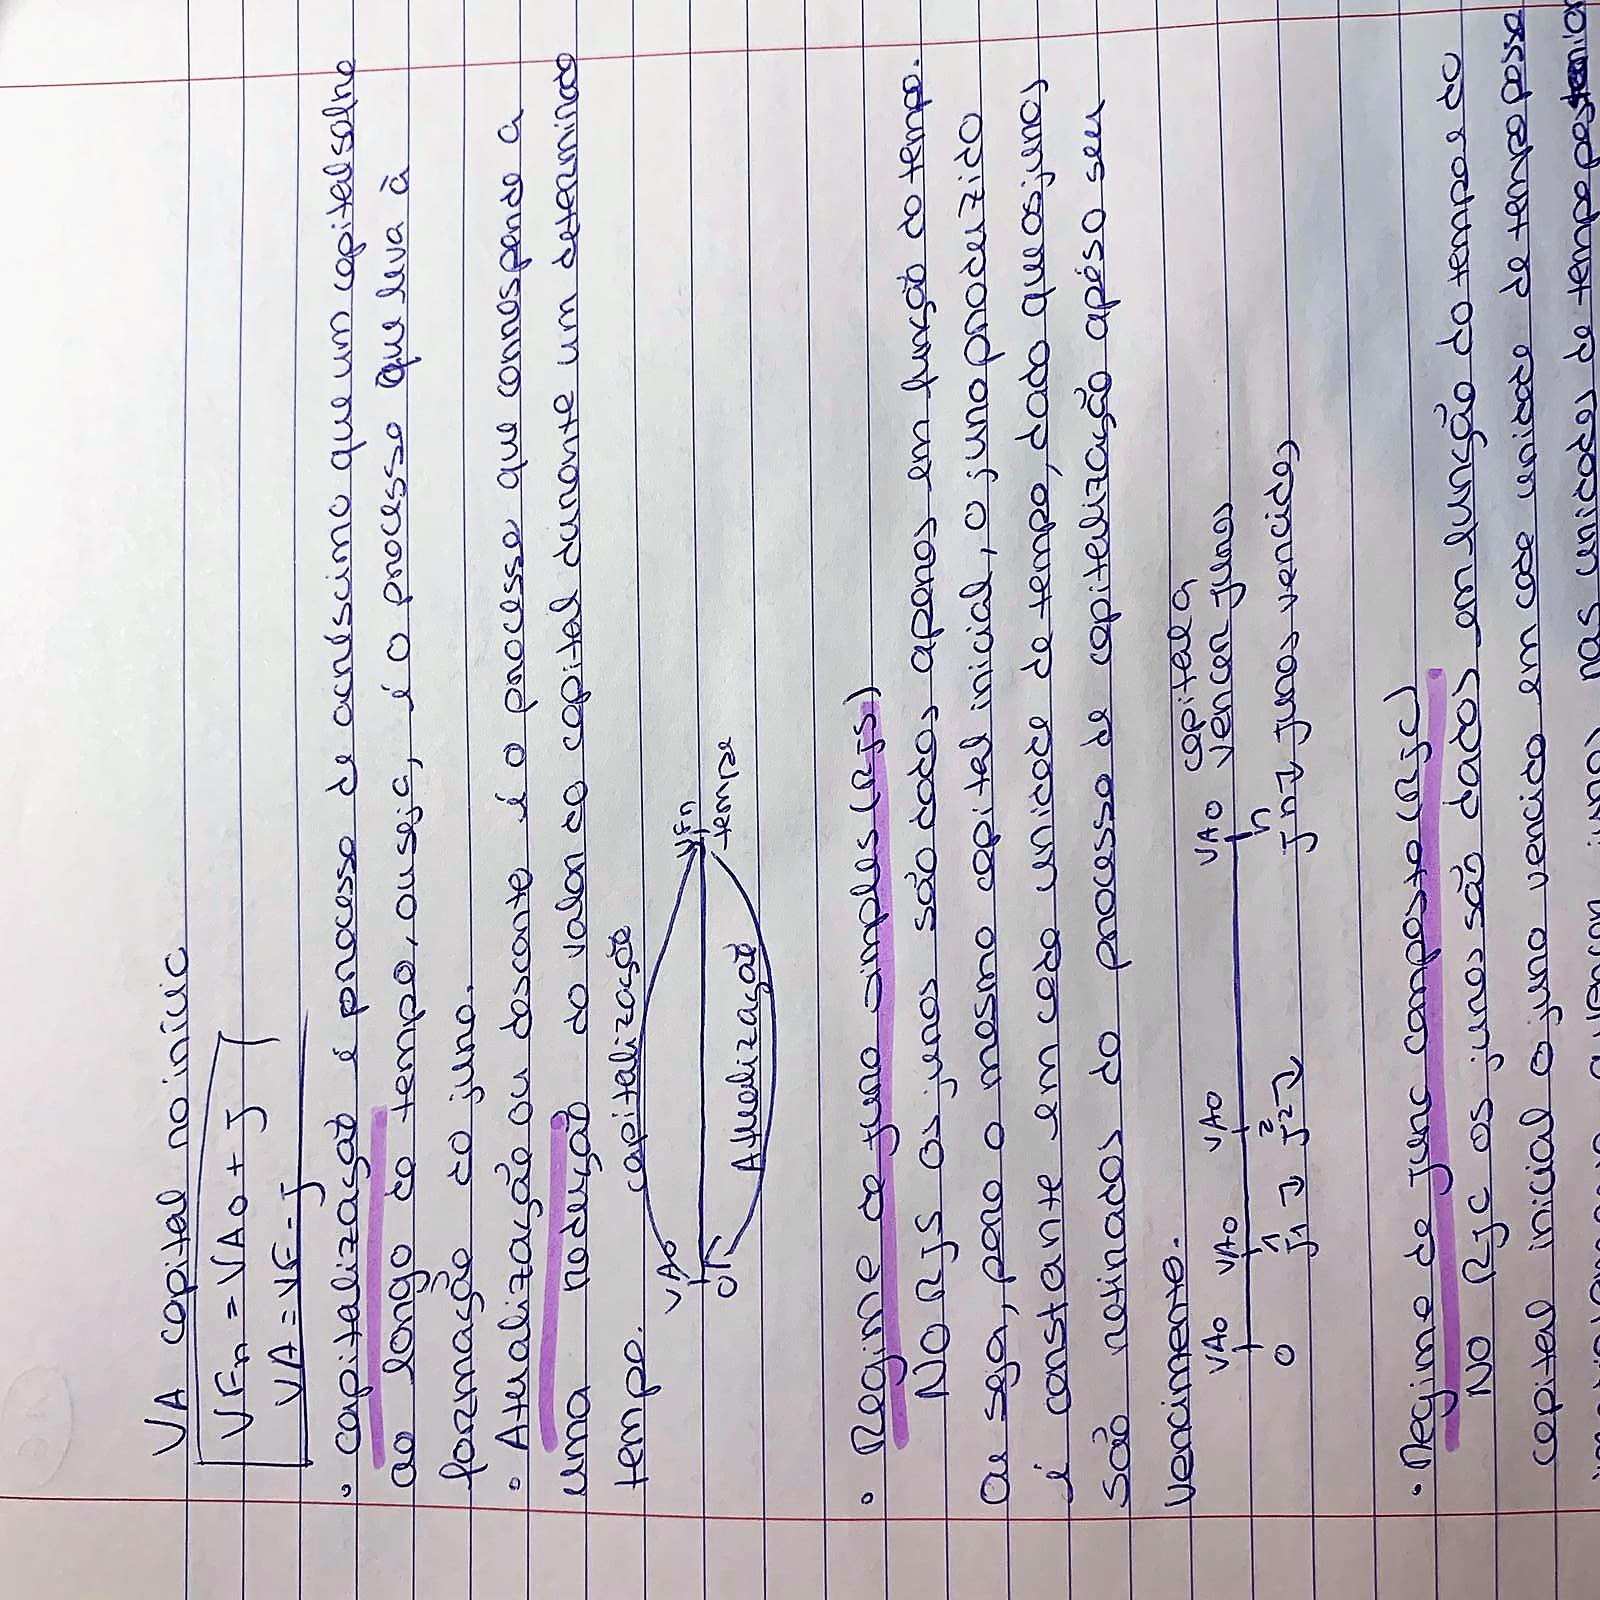 VA capital no início
VFn = VA0 + J
VA = VF - J
• Capitalização é processo de acréscimo que um capital sofre
ao longo do tempo, ou seja, é o processo que leva à
formação do juro.
• Atualização ou desconto é o processo que corresponde a
uma redução do valor do capital durante um determinado
tempo.
capitalização
VA0 VFn
0 tempo
Atualização
• Regime de juro simples (RJS)
No RJS os juros são dados apenas em função do tempo.
Ou seja, para o mesmo capital inicial, o juro produzido
é constante em cada unidade de tempo, dado que os juros
são retirados do processo de capitalização após o seu
vencimento.
VA0 VA0 VA0 VA0 capital a
vencer juros
0 1 2 n
J1 ↓ J2 ↓ Jn ↓ juros vencidos
• Regime de juro composto (RJC)
No RJC os juros são dados em função do tempo e do
capital inicial o juro vencido em cada unidade de tempo passa
a vencer juros nas unidades de tempo posterior